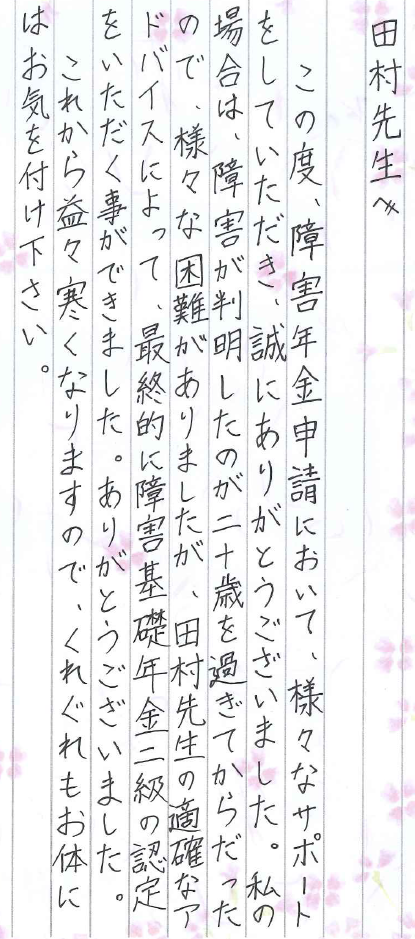 田村先生へ
この度、障害年金申請において、様々なサポート
をしていただき、誠にありがとうございました。私の
場合は、障害が判明したのが二十歳を過ぎてからだった
ので、様々な困難がありましたが、田村先生の適確なア
ドバイスによって、最終的に障害基礎年金二級の認定
をいただく事ができました。ありがとうございました。
これから益々寒くなりますので、くれぐれもお体に
はお気を付け下さい。